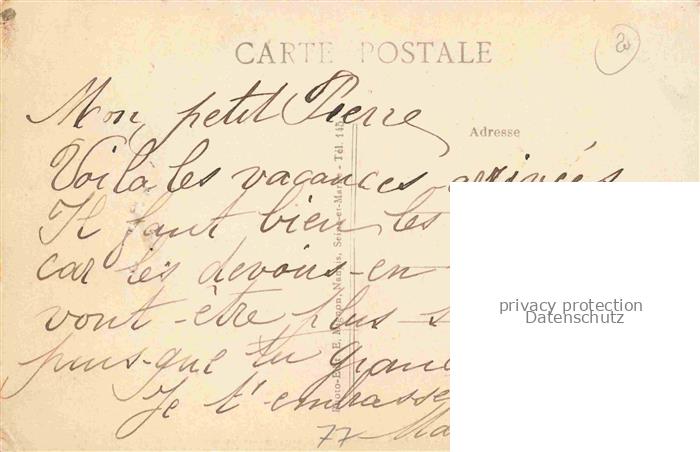 CARTE POSTALE
Mon petit Pierre
Adresse
Voilà les vacances arrivées
Il faut bien les
car les devoirs-en
vont-être plus-s
puis-que tu gran
Je t'embrasse
77 Ma
Photo-Edit. E. Mignon, Nangis, Seine-et-Marne - Tél. 145
privacy protection
Datenschutz